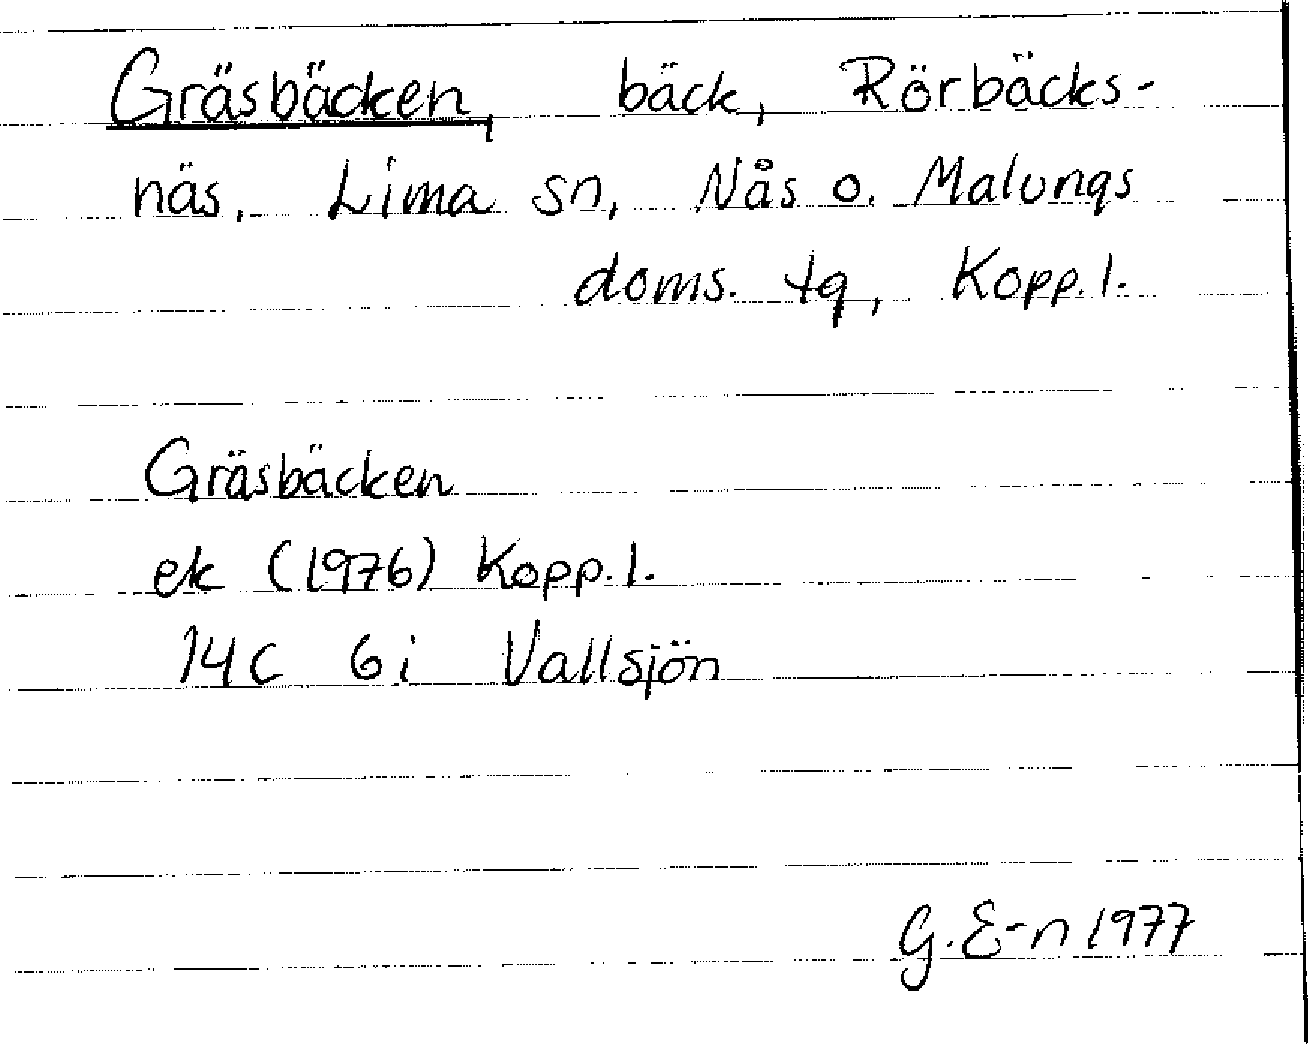 Gräsbäcken, bäck, Rörbäcks-
näs, Lima sn, Nås o. Malungs
doms. tg, Kopp. l.
Gräsbäcken
ek (1976) Kopp. l.
14C 6i Vallsjön
G. E-n 1977